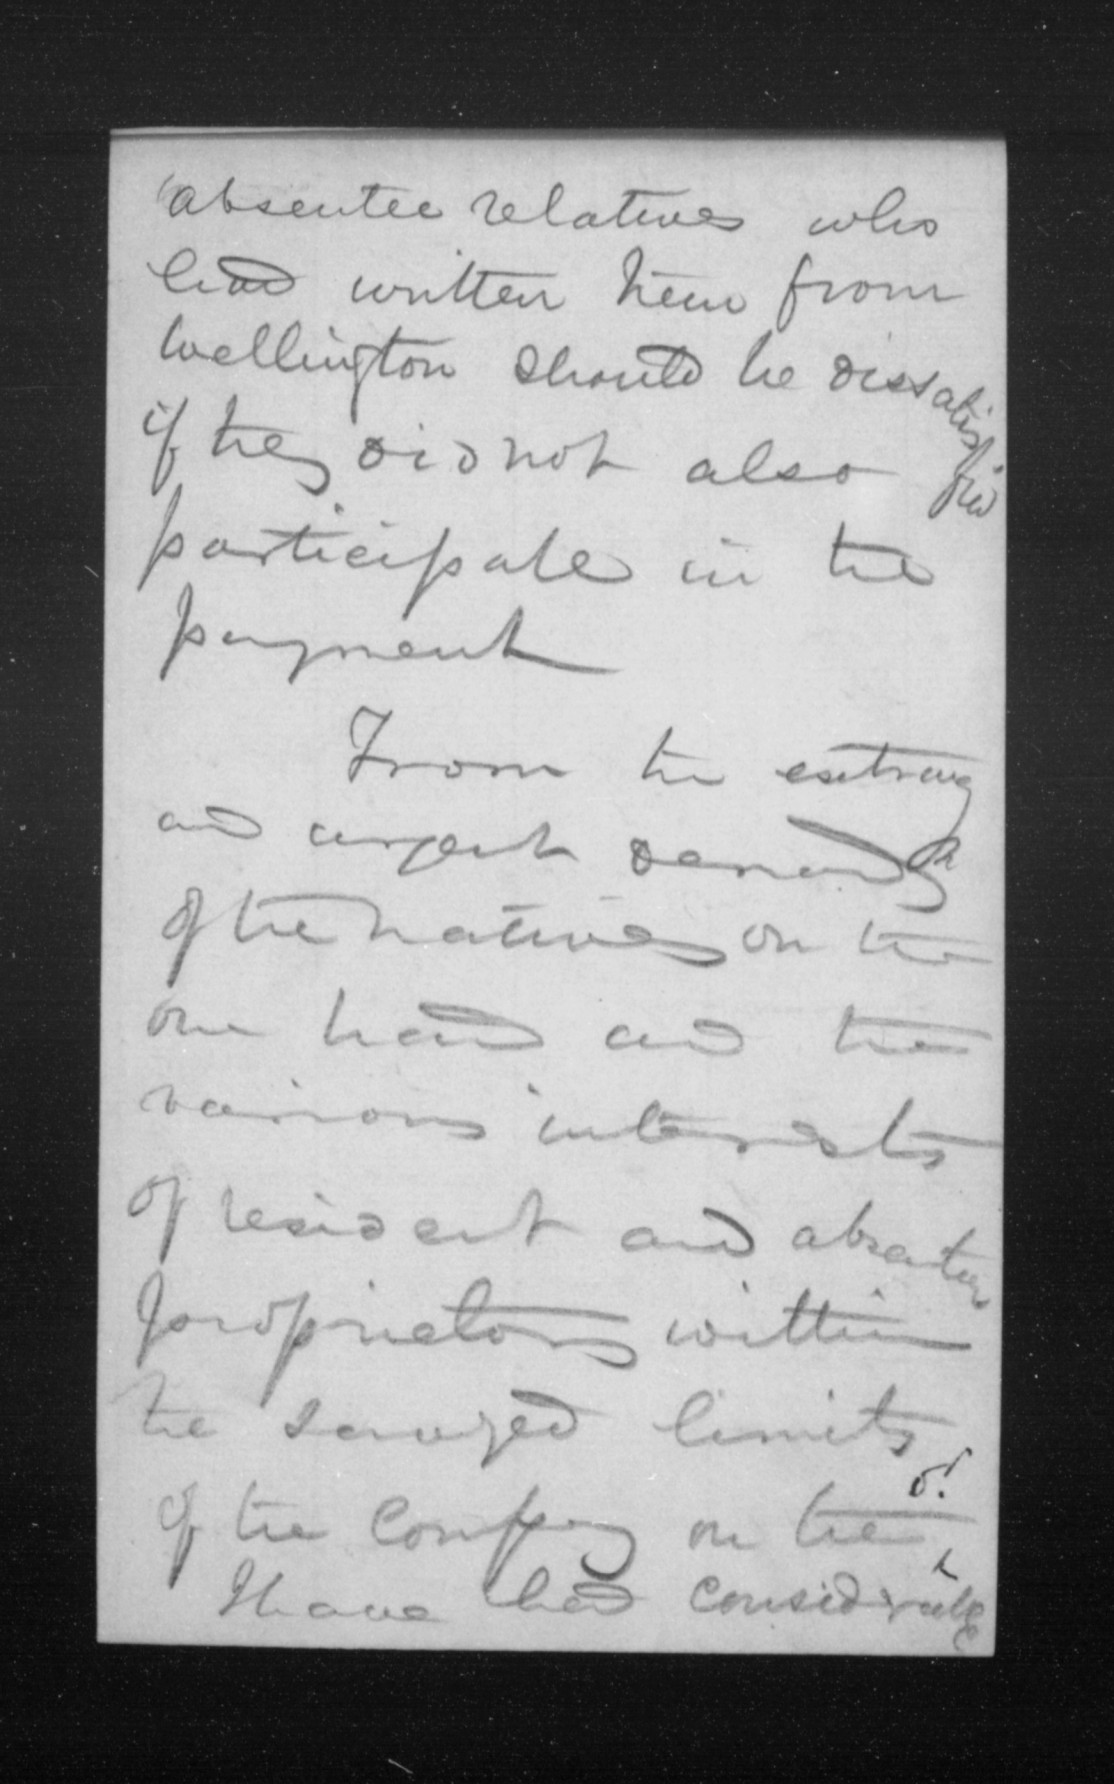 absentee relatives who
had written him from
Wellington should be dissatisfied
if they did not also
participate in the
payment
From the
and urgent demands
of the natives on the
one hand and the
various interests
of resident and absentee
proprietors within
the limits
of the Company on the or.
I have had considerable